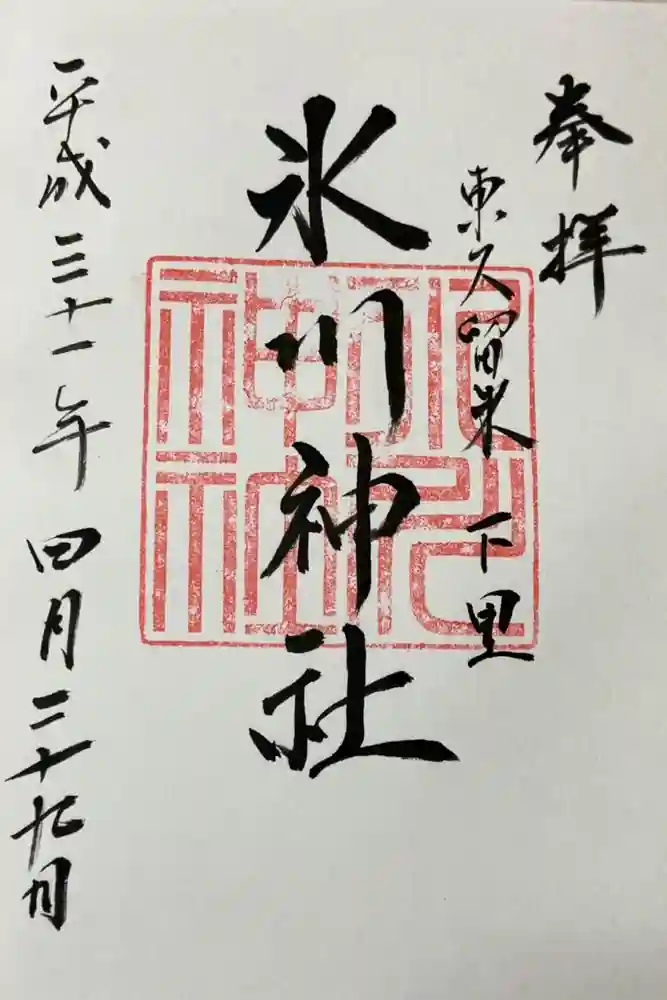 奉拝
東久留米 下里
氷川神社
平成三十一年四月二十九日